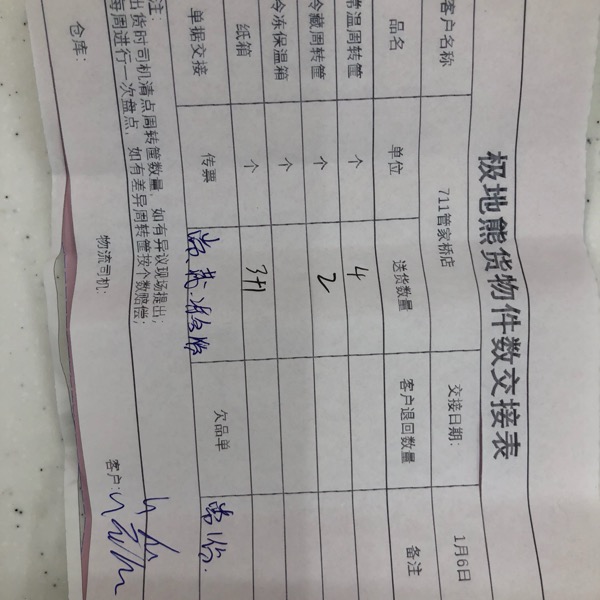 极地熊货物件数交接表
客户名称 711管家桥店 交接日期: 1月6日
品名 单位 送货数量 客户退回数量 备注
常温周转筐 个 4
冷藏周转筐 个 2
冷冻保温箱 个
纸箱 个 3+1
单据交接 传票 常 欠品单 常
注:
出货时司机清点周转筐数量 如有异议现场提出;
每周进行一次盘点, 如有差异周转筐按个数赔偿;
仓库: 物流司机: 客户: